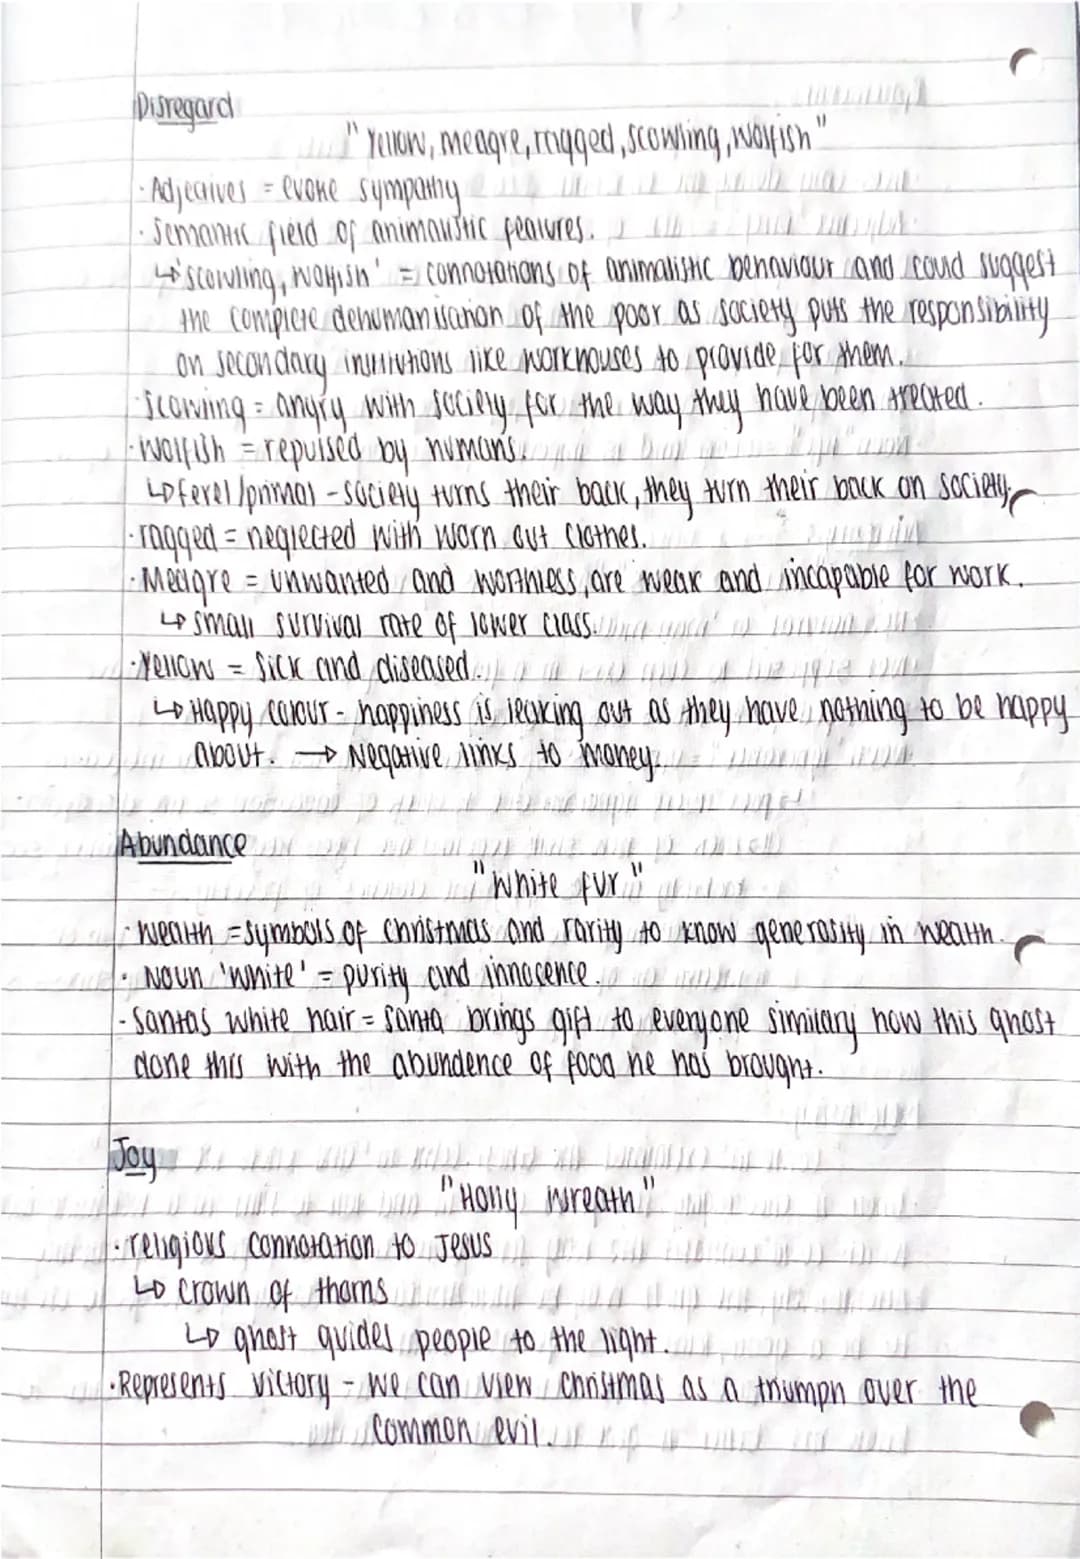 Disregard
"Yellow, meagre, ragged, scowling, wolfish"
· Adjectives = evoke sympathy
· Semantic field of animalistic features.
↳ 'scowling, wolfish' = connotations of animalistic behaviour and could suggest
the complete dehumanisation of the poor as society puts the responsibility
on secondary institutions like workhouses to provide for them.
· Scowling = angry with society for the way they have been treated.
· Wolfish = repulsed by humans.
↳ ferel/primal - society turns their back, they turn their back on society.
· ragged = neglected with worn out clothes.
· Meagre = unwanted and worthless, are weak and incapable for work.
↳ small survival rate of lower class.
· Yellow = Sick and diseased.
↳ Happy colour - happiness is leaking out as they have nothing to be happy
about. → Negative links to money.
Abundance
"White fur"
· Wealth = symbols of Christmas and rarity to know generosity in wealth.
· Noun 'white' = purity and innocence.
- Santas white hair = Santa brings gift to everyone similary how this ghost
done this with the abundence of food he has brought.
Joy
"Holly wreath"
· religious connotation to Jesus
↳ crown of thorns
↳ ghost guides people to the light.
· Represents victory - we can view Christmas as a triumph over the
common evil.